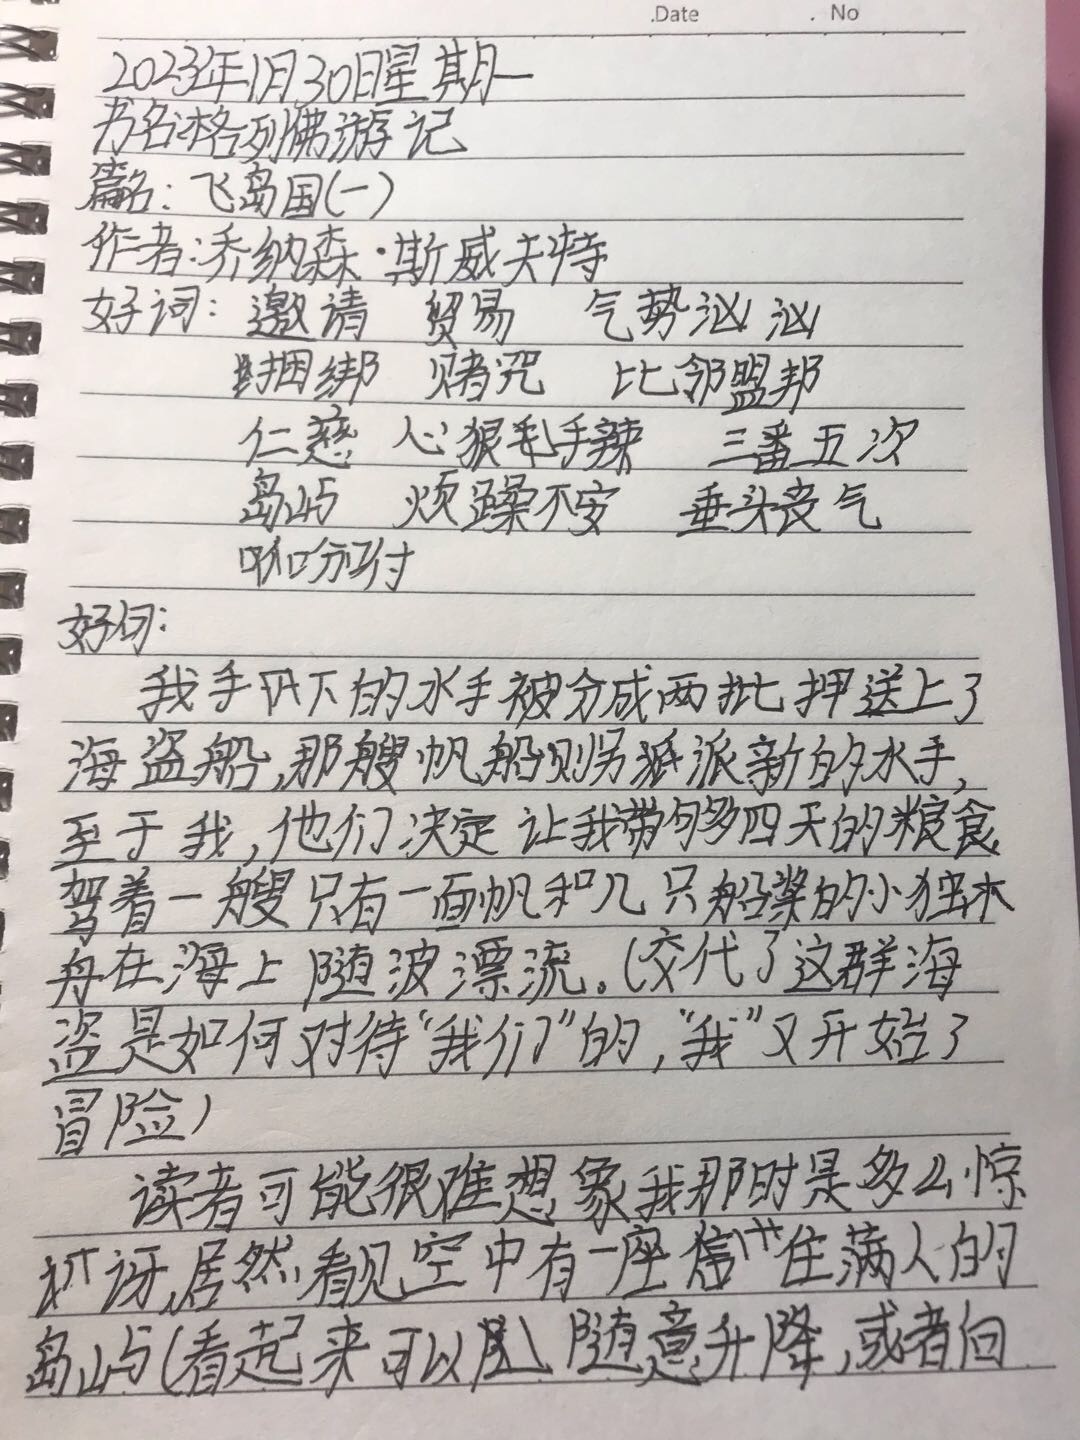 .Date . No
2023年1月30日星期一
书名:格列佛游记
篇名:飞岛国(一)
作者:乔纳森·斯威夫特
好词:邀请 贸易 气势汹汹
捆绑 赌咒 比邻盟邦
仁慈 心狠手辣 三番五次
岛屿 烦躁不安 垂头丧气
吩咐
好句:
我手下的水手被分成两批押送上了
海盗船,那艘帆船则另派新的水手,
至于我,他们决定让我带够四天的粮食
驾着一艘只有一面帆和几只船桨的小独木
舟在海上随波漂流。(交代了这群海
盗是如何对待“我们”的,“我”又开始了
冒险)
读者可能很难想象我那时是多么惊
讶,居然看见空中有一座住满人的
岛屿(看起来可以随意升降,或者向